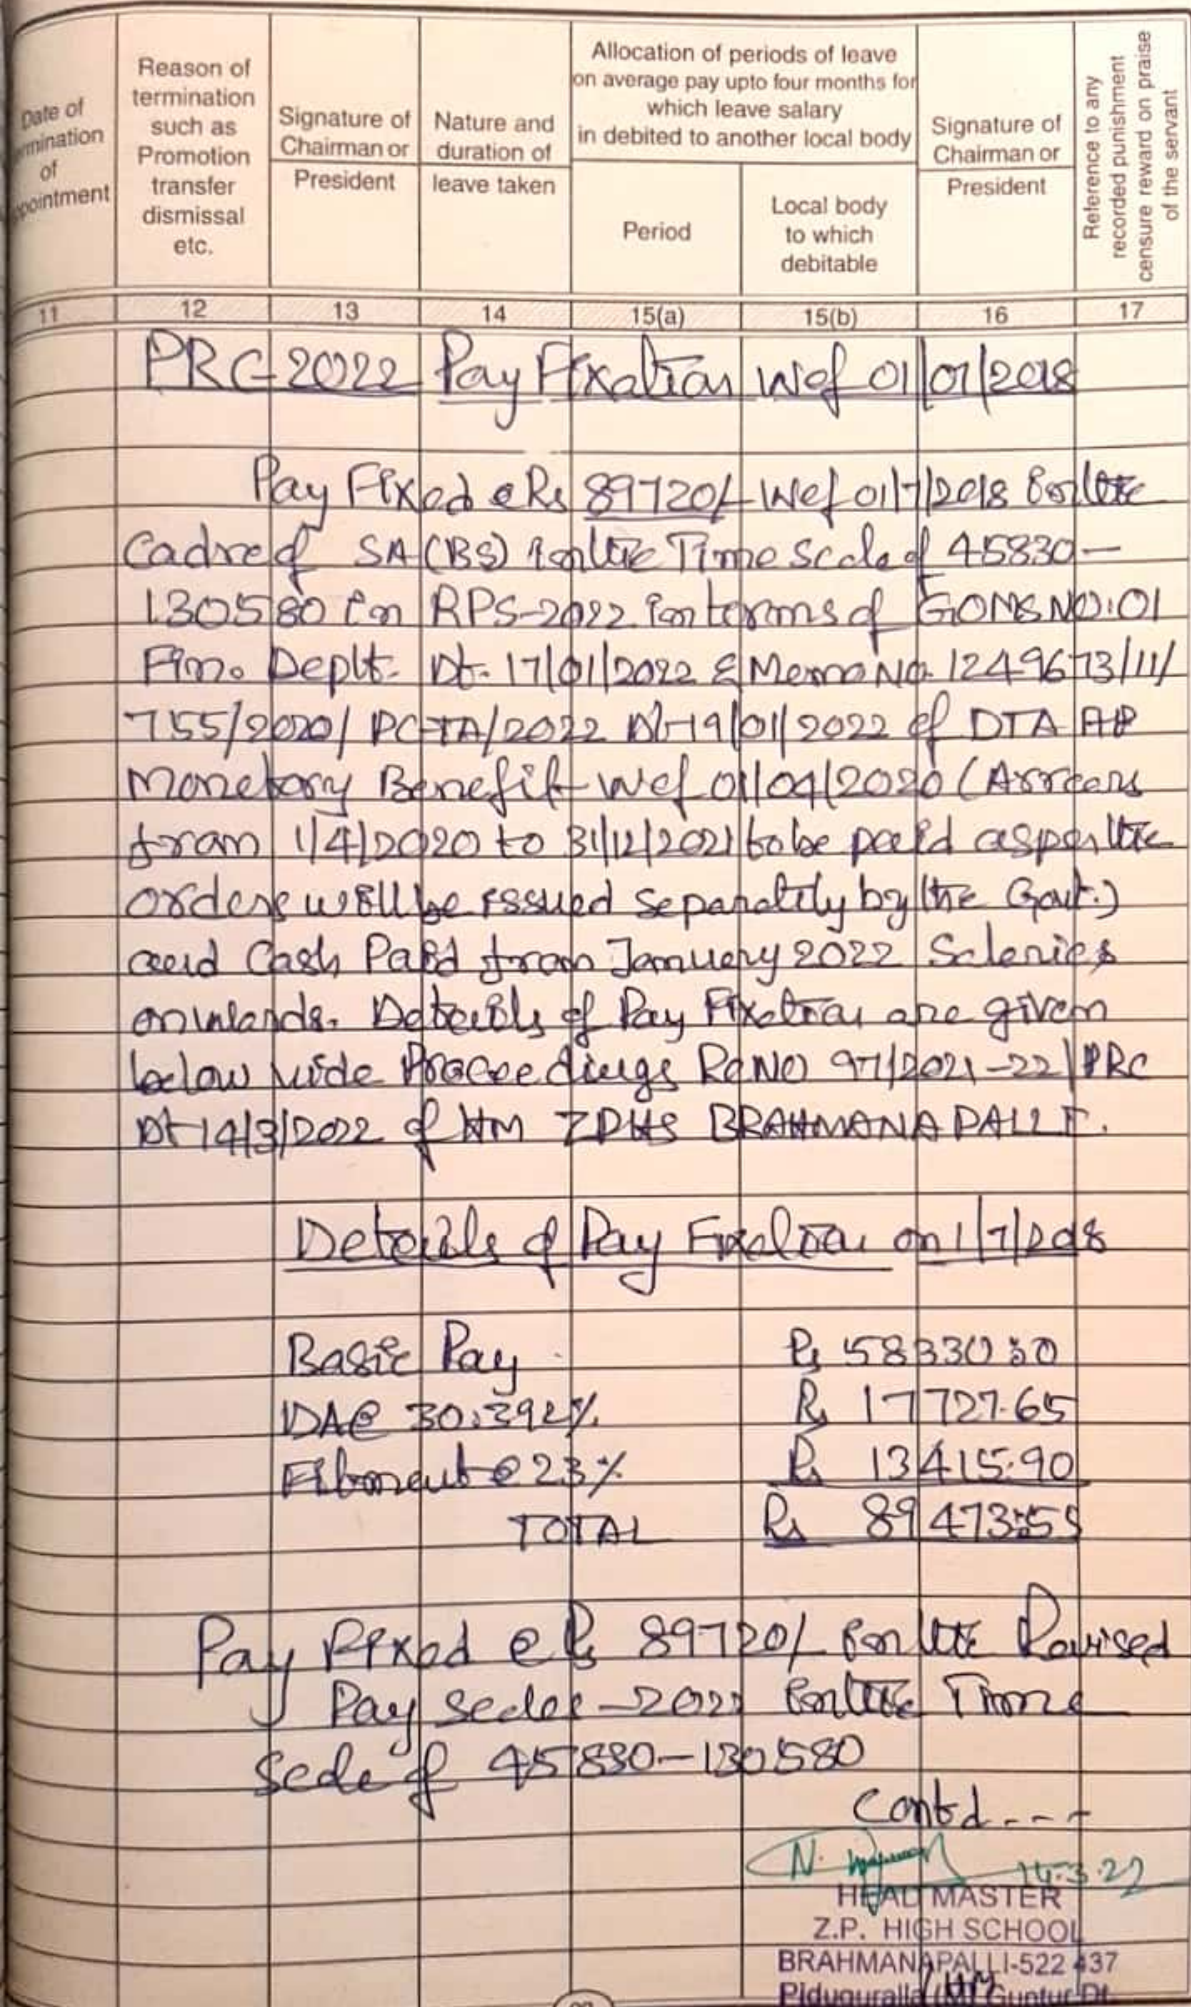 Date of
mination
of
ppointment
Reason of
termination
such as
Promotion
transfer
dismissal
etc.
Signature of
Chairman or
President
Nature and
duration of
leave taken
Allocation of periods of leave
on average pay upto four months for
which leave salary
in debited to another local body
Period
Local body
to which
debitable
Signature of
Chairman or
President
Reference to any
recorded punishment
censure reward on praise
of the servant
11 12 13 14 15(a) 15(b) 16 17
PRC-2022 Pay Fixation wef 01/07/2018
Pay Fixed @ Rs 89720/- wef 01/7/2018 in the
Cadre of SA (BS) in the Time Scale of 45830-
130580 in RPS-2022 in terms of GOMS NO:01
Fin. Deptt. Dt. 17/01/2022 & Memo No. 1249673/11/
755/2020/ PC-TA/2022 Dt-19/01/2022 of DTA AP
Monetary Benefit wef 01/04/2020 (Arrears
from 1/4/2020 to 31/12/2021 to be paid as per the
orders will be issued separately by the Govt.)
and Cash Paid from January 2022 Salaries
onwards. Details of Pay Fixation are given
below vide Proceedings RcNO 97/2021-22/PRC
Dt 14/3/2022 of HM ZPHS BRAHMANAPALLI.
Details of Pay Fixation on 1/7/2018
Basic Pay Rs 58330:00
DA@ 30.392% Rs 17727.65
Fitment @ 23% Rs 13415.90
TOTAL Rs 89473:55
Pay Fixed @ Rs 89720/- in the Revised
Pay Scales -2022 in the Time
Scale of 45830-130580
Contd---
N. 14.3.22
HEAD MASTER
Z.P. HIGH SCHOOL
BRAHMANAPALLI-522 437
Piduguralla (M) Guntur Dt.